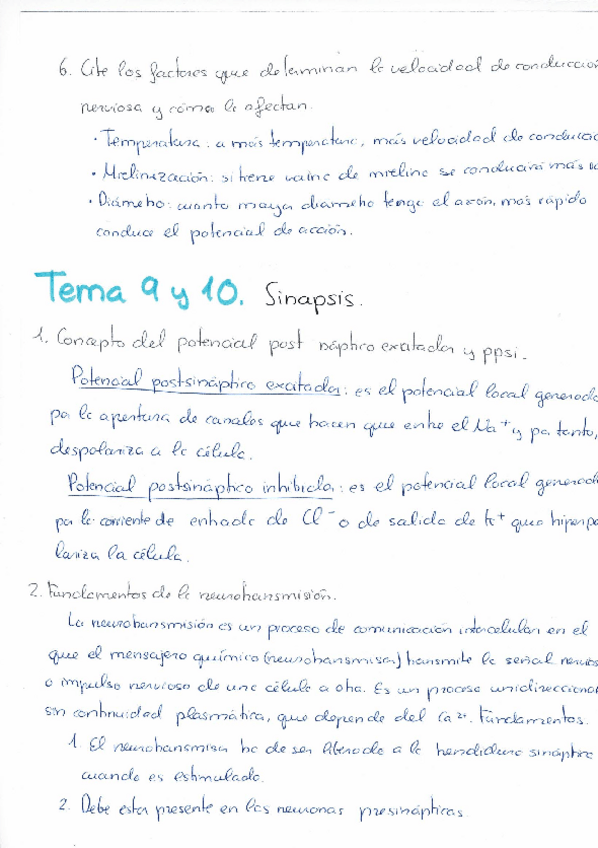 6. Cite los factores que determinan la velocidad de conducción
nerviosa y cómo la afectan.
· Temperatura: a más temperatura, más velocidad de conducc
· Mielinización: si tiene vaina de mielina se conducirá más
· Diámetro: cuanto mayor diámetro tenga el axón, más rápido
conduce el potencial de acción.
Tema 9 y 10. Sinapsis.
1. Concepto del potencial post náptico excitador y ppsi.
Potencial postsináptico excitador: es el potencial local generado
por la apertura de canales que hacen que entre el Na⁺ y, por tanto,
despolariza a la célula.
Potencial postsináptico inhibidor: es el potencial local generado
por la corriente de entrada de Cl⁻ o de salida de K⁺ que hiperpo
lariza la célula.
2. Fundamentos de la neurotransmisión.
La neurotransmisión es un proceso de comunicación intercelular en el
que el mensajero químico (neurotransmisor) transmite la señal nervios
o impulso nervioso de una célula a otra. Es un proceso unidireccional
sin continuidad plasmática, que depende del Ca²⁺. Fundamentos.
1. El neurotransmisor ha de ser liberado a la hendidura sináptica
cuando es estimulado.
2. Debe estar presente en las neuronas presinápticas.